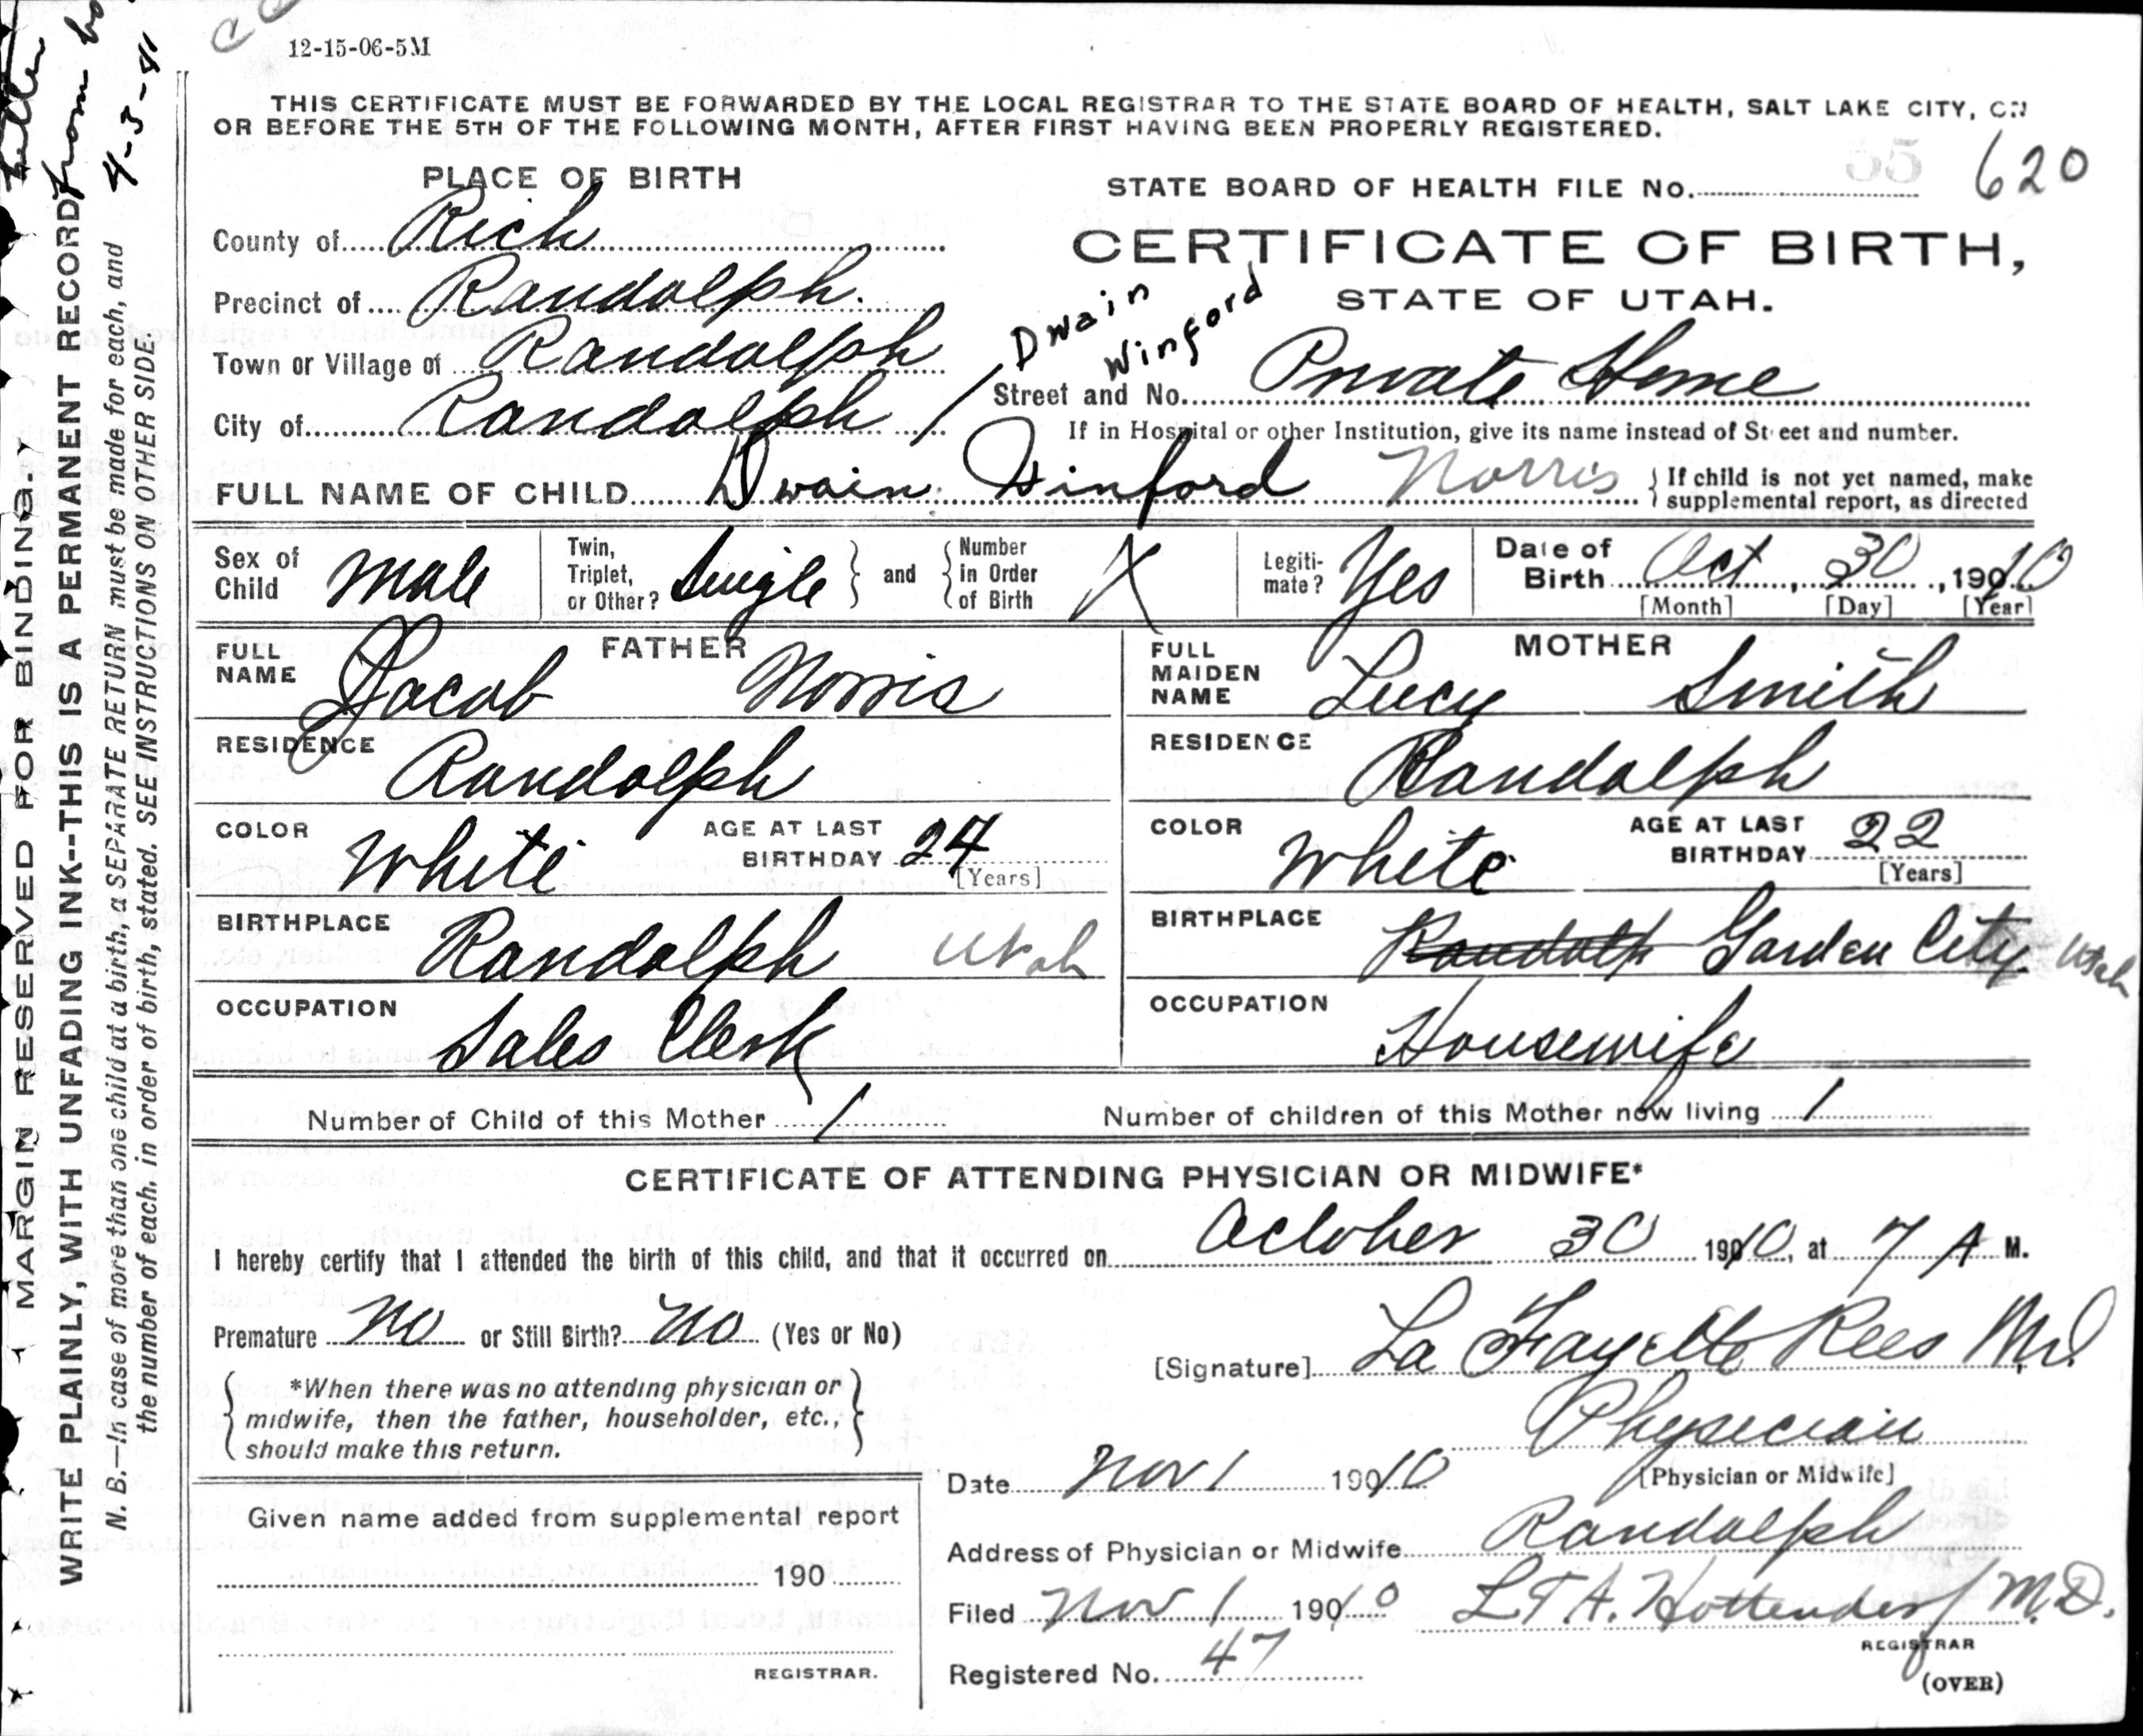 12-15-06-5M
THIS CERTIFICATE MUST BE FORWARDED BY THE LOCAL REGISTRAR TO THE STATE BOARD OF HEALTH, SALT LAKE CITY, ON
OR BEFORE THE 5TH OF THE FOLLOWING MONTH, AFTER FIRST HAVING BEEN PROPERLY REGISTERED.
PLACE OF BIRTH
County of Rich
Precinct of Randolph.
Town or Village of Randolph
City of Randolph
STATE BOARD OF HEALTH FILE No. 55 620
CERTIFICATE OF BIRTH,
STATE OF UTAH.
Dwain
Winford
Street and No. Private Home
If in Hospital or other Institution, give its name instead of Street and number.
FULL NAME OF CHILD Dwain Winford Norris
{ If child is not yet named, make
supplemental report, as directed
Sex of Child male
Twin, Triplet, or Other? Single } and { Number in Order of Birth X
Legitimate? Yes
Date of Birth Oct, 30, 1910
[Month] [Day] [Year]
FATHER
FULL NAME Jacob Norris
RESIDENCE Randolph
COLOR White AGE AT LAST BIRTHDAY 24 [Years]
BIRTHPLACE Randolph Utah
OCCUPATION Sales Clerk
MOTHER
FULL MAIDEN NAME Lucy Smith
RESIDENCE Randolph
COLOR White AGE AT LAST BIRTHDAY 22 [Years]
BIRTHPLACE Randolph Garden City Utah
OCCUPATION Housewife
Number of Child of this Mother 1
Number of children of this Mother now living 1
CERTIFICATE OF ATTENDING PHYSICIAN OR MIDWIFE*
I hereby certify that I attended the birth of this child, and that it occurred on October 30 1910, at 7 A M.
Premature No or Still Birth? No (Yes or No)
{ *When there was no attending physician or
midwife, then the father, householder, etc.,
should make this return. }
[Signature] La Fayette Rees M.D.
Physician
[Physician or Midwife]
Date Nov 1 1910
Address of Physician or Midwife Randolph
Given name added from supplemental report
190
REGISTRAR.
Filed Nov 1 1910 M.D.
REGISTRAR
Registered No. 47
(OVER)
MARGIN RESERVED FOR BINDING.
WRITE PLAINLY, WITH UNFADING INK--THIS IS A PERMANENT RECORD
N. B.—In case of more than one child at a birth, a SEPARATE RETURN must be made for each, and
the number of each, in order of birth, stated. SEE INSTRUCTIONS ON OTHER SIDE
letter
from
4-3-41